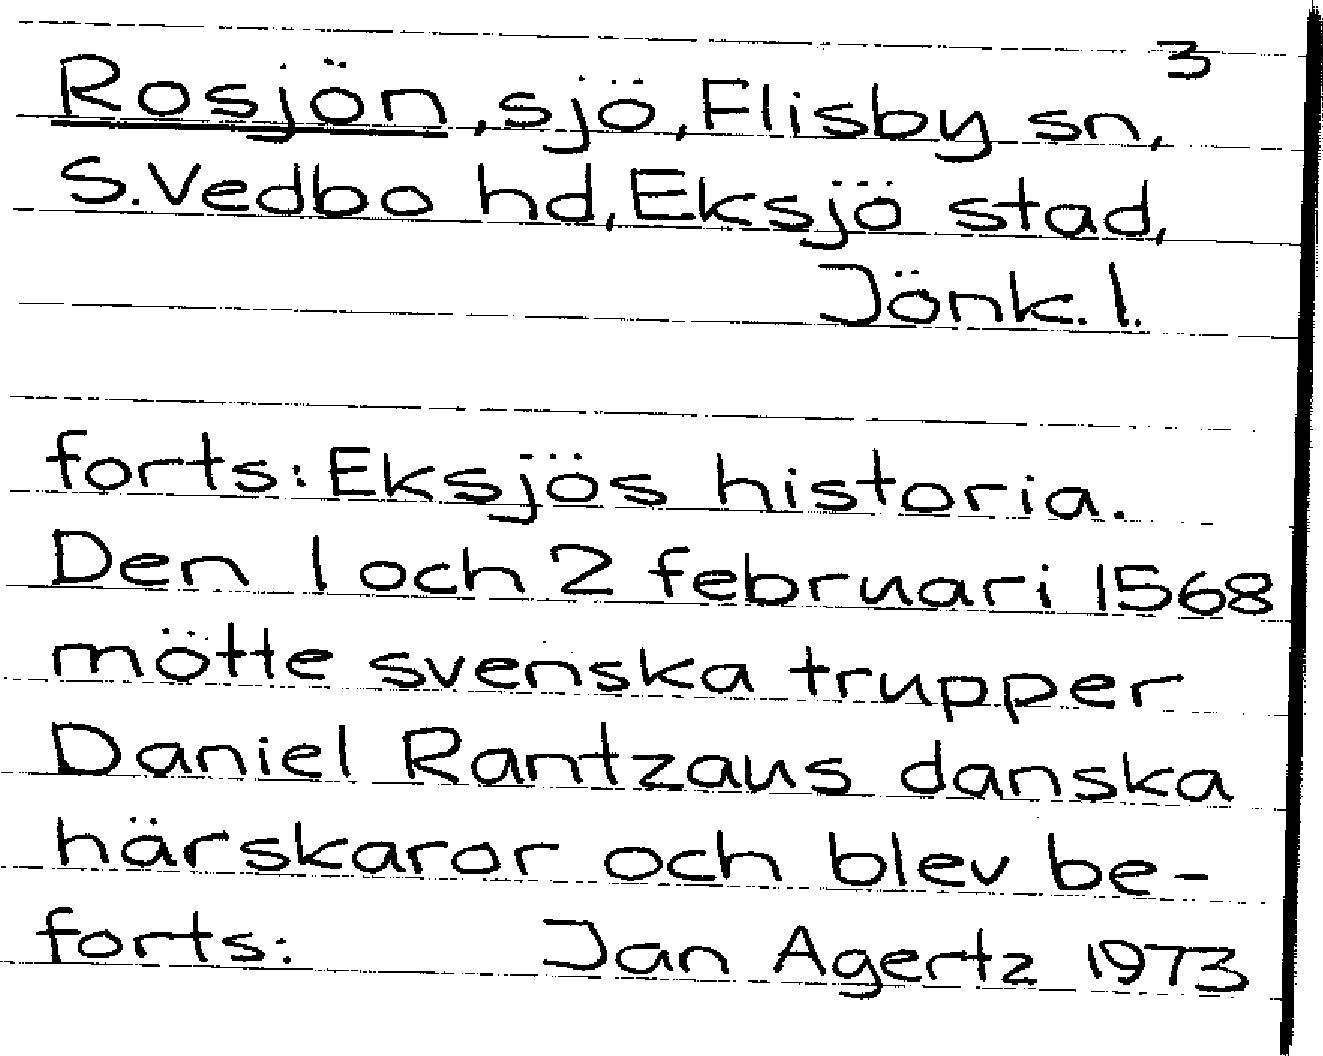 3
Rosjön, sjö, Flisby sn,
S. Vedbo hd, Eksjö stad,
Jönk. l.
forts: Eksjös historia.
Den 1 och 2 februari 1568
mötte svenska trupper
Daniel Rantzaus danska
härskaror och blev be-
forts: Jan Agertz 1973